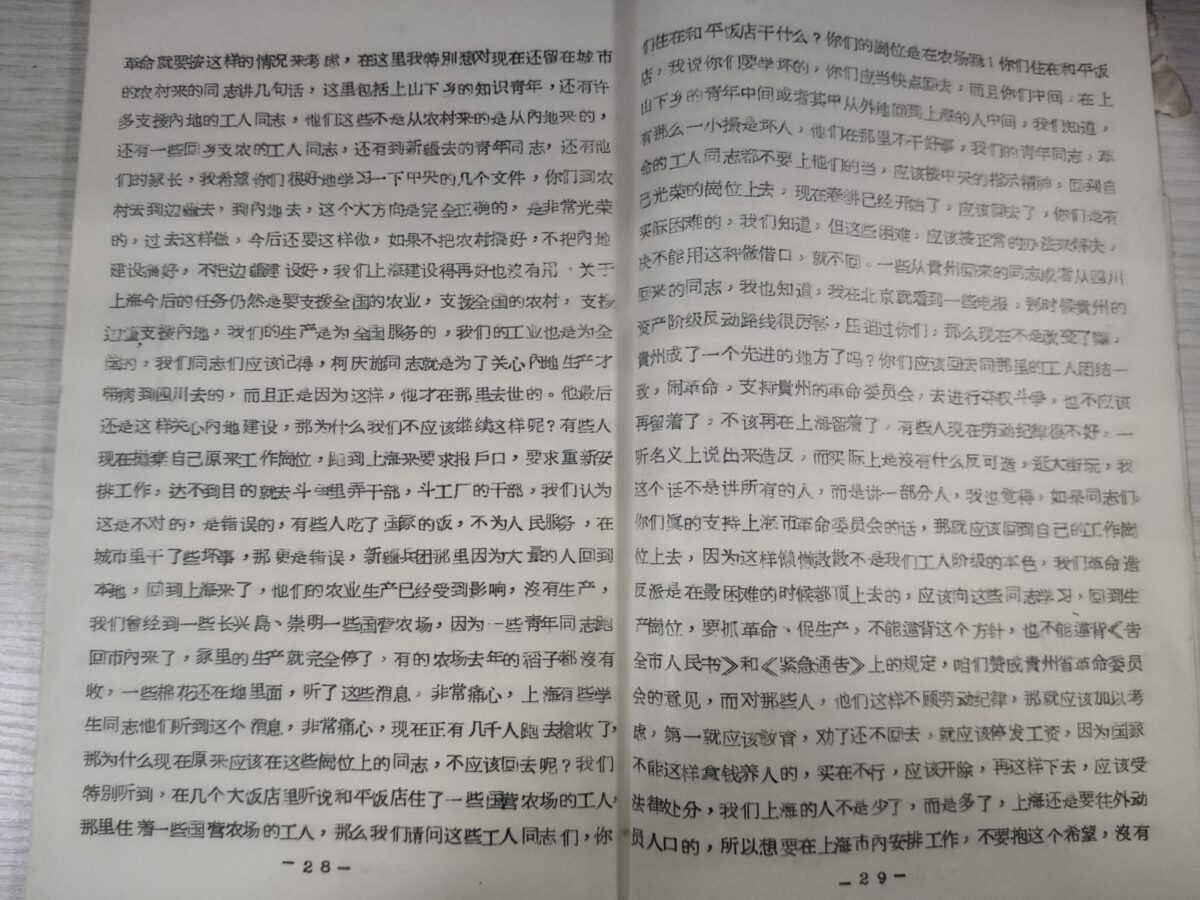 革命就要按这样的情况来考虑，在这里我特别想对现在还留在城市
的农村来的同志讲几句话，这里包括上山下乡的知识青年，还有许
多支援内地的工人同志，他们这些不是从农村来的是从内地来的，
还有一些回乡支农的工人同志，还有到新疆去的青年同志，还有他
们的家长，我希望你们很好地学习一下中央的几个文件，你们到农
村去到边疆去，到内地去，这个大方向是完全正确的，是非常光荣
的，过去这样做，今后还要这样做，如果不把农村搞好，不把内地
建设搞好，不把边疆建设好，我们上海建设得再好也沒有用．关于
上海今后的任务仍然是要支援全国的农业，支援全国的农村，支援
边疆支援内地，我们的生产是为全国服务的，我们的工业也是为全
国的，我们同志们应该记得，柯庆施同志就是为了关心内地生产才
带病到四川去的，而且正是因为这样，他才在那里去世的。他最后
还是这样关心内地建设，那为什么我们不应该继续这样呢？有些人
现在抛弃自己原来工作岗位，跑到上海来要求报戶口，要求重新安
排工作，达不到目的就去斗里弄干部，斗工厂的干部，我们认为
这是不对的，是错误的，有些人吃了国家的饭，不为人民服务，在
城市里干了些坏事，那更是错误，新疆兵团那里因为大量的人回到
本地，回到上海来了，他们的农业生产已经受到影响，沒有生产，
我们曾经到一些长兴岛、崇明一些国营农场，因为一些青年同志跑
回市内来了，家里的生产就完全停了，有的农场去年的稻子都沒有
收，一些棉花还在地里面，听了这些消息，非常痛心，上海有些学
生同志他们听到这个消息，非常痛心，现在正有几千人跑去搶收了，
那为什么现在原来应该在这些岗位上的同志，不应该回去呢？我们
特别听到，在几个大饭店里听说和平饭店住了一些国营农场的工人，
那里住着一些国营农场的工人，那么我们请问这些工人同志们，你
－28－
们住在和平饭店干什么？你们的岗位是在农场嘛；你们住在和平饭
店，我说你们要学坏的，你们应当快点回去，而且你们中间，在上
山下乡的青年中间或者其中从外地回到上海的人中间，我们知道，
有那么一小撮是坏人，他们在那里不干好事，我们的青年同志，革
命的工人同志都不要上他们的当，应该按中央的指示精神，回到自
己光荣的岗位上去，现在春耕已经开始了，应该回去了，你们是有
实际困难的，我们知道，但这些困难，应该按正常的办法来解决，
决不能用这种做借口，就不回。一些从貴州回来的同志或者从四川
回来的同志，我也知道，我在北京就看到一些电报，那时候貴州的
资产阶级反动路线很厉害，压迫过你们，那么现在不是改变了嘛，
貴州成了一个先进的地方了吗？你们应该回去同那里的工人团结一
致，闹革命，支持貴州的革命委员会，去进行夺权斗争，也不应该
再留着了，不该再在上海留着了，有些人现在劳动纪律很不好，一
听名义上说出来造反，而实际上是沒有什么反可造，逛大街玩，我
这个话不是讲所有的人，而是讲一部分人，我也觉得，如果同志们
你们真的支持上海市革命委员会的话，那就应该回到自己的工作岗
位上去，因为这样懒懒散散不是我们工人阶级的本色，我们革命造
反派是在最困难的时候都顶上去的，应该向这些同志学习，回到生
产岗位，要抓革命、促生产，不能違背这个方针，也不能違背《告
全市人民书》和《紧急通告》上的规定，咱们赞成貴州省革命委员
会的意见，而对那些人，他们这样不顾劳动纪律，那就应该加以考
虑，第一就应该教育，劝了还不回去，就应该停发工资，因为国家
不能这样拿钱养人的，实在不行，应该开除，再这样下去，应该受
法律处分，我们上海的人不是少了，而是多了，上海还是要往外动
员人口的，所以想要在上海市内安排工作，不要抱这个希望，沒有
－29－